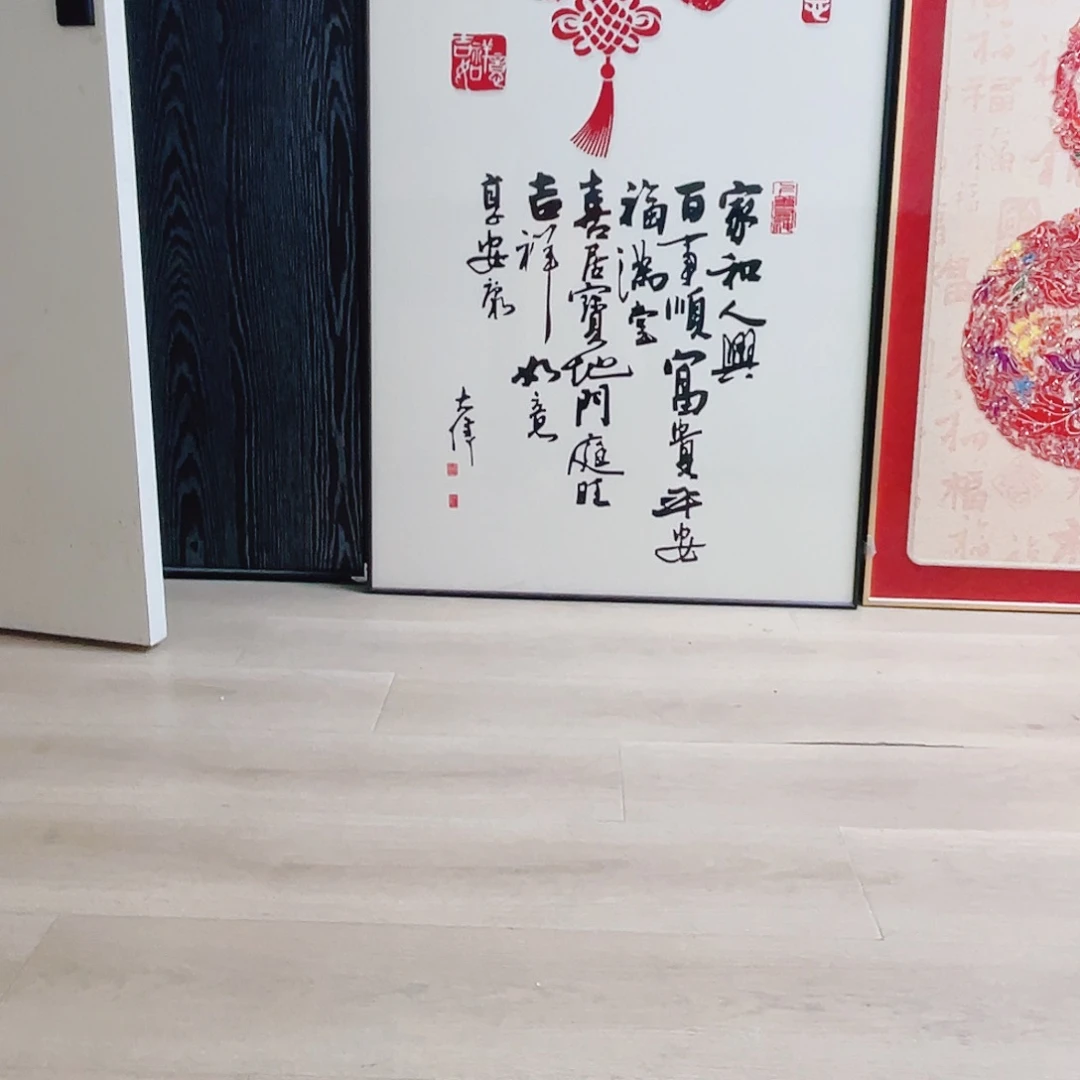 家和人興
百事順富貴平安
福滿堂
喜居寶地門庭旺
吉祥如意
享安康
大偉
吉祥如意
福
福
福
福